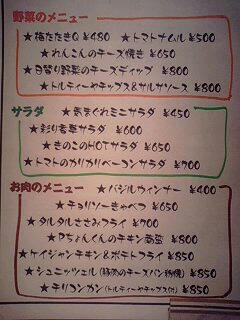 野菜のメニュー
★梅たたきQ ¥480 ★トマトナムル ¥500
★れんこんのチーズ焼き ¥650
★日替り野菜のチーズディップ ¥800
★トルティーヤチップス&サルサソース ¥800
サラダ
★気まぐれミニサラダ ¥450
★彩り香草サラダ ¥600
★きのこのHOTサラダ ¥650
★トマトのカリカリベーコンサラダ ¥700
お肉のメニュー
★バジルウィンナー ¥400
★チョリソーきゃべつ ¥650
★タルタルささみフライ ¥700
★Pちょんくんのチキン南蛮 ¥800
★ケイジャンチキン&ポテトフライ ¥850
★シュニッツェル(豚肉のチーズパン粉焼) ¥850
★チリコンカン(トルティーヤチップス付) ¥850